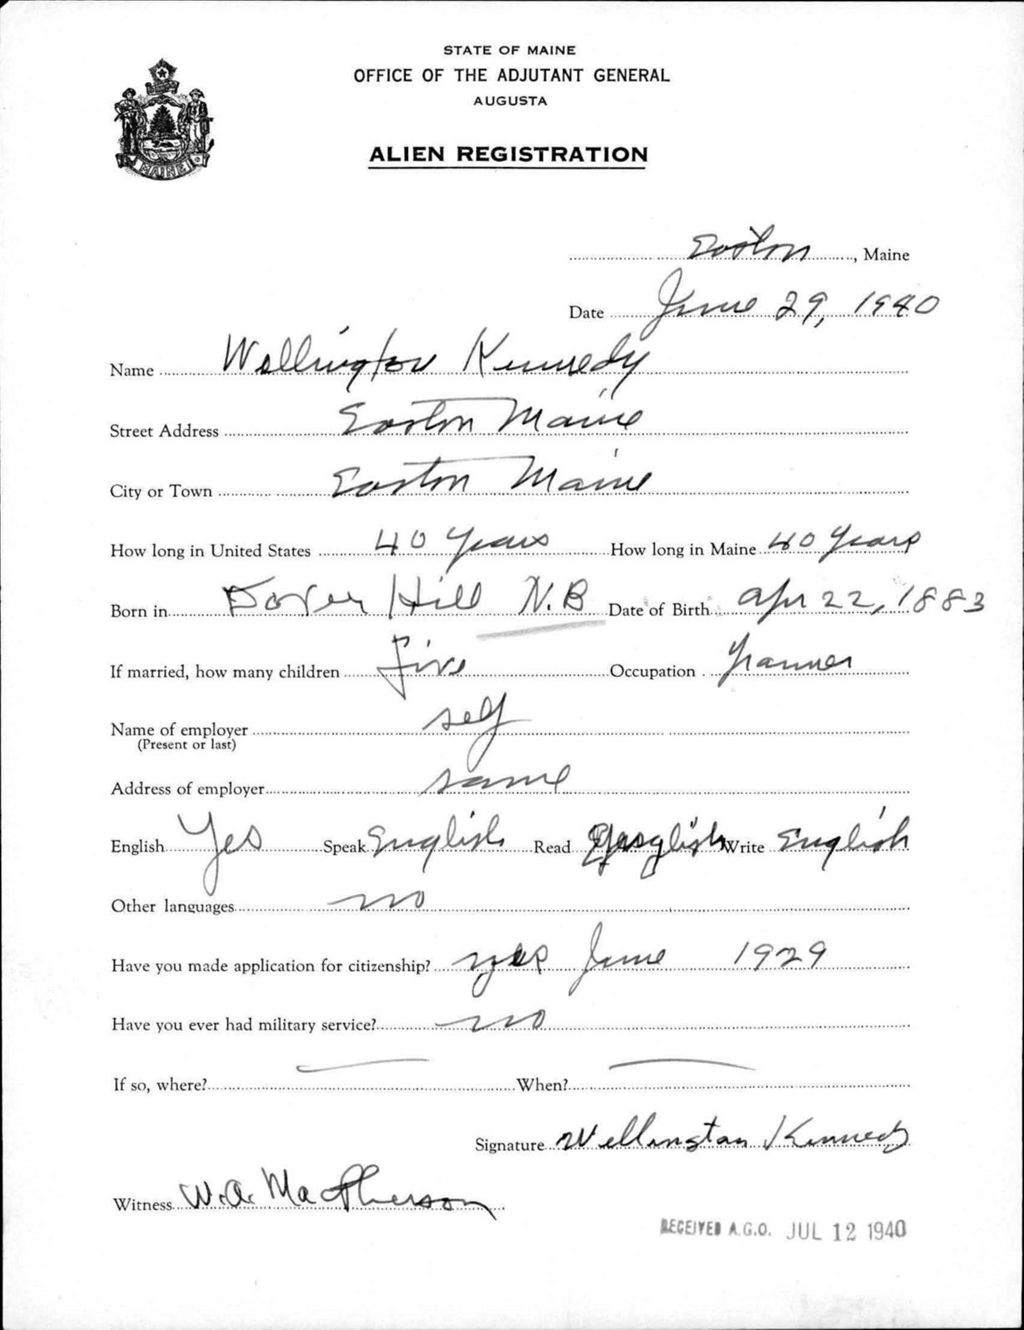 STATE OF MAINE
OFFICE OF THE ADJUTANT GENERAL
AUGUSTA
MAINE
ALIEN REGISTRATION
Easton, Maine
Date June 29, 1940
Name Wellington Kennedy
Street Address Easton Maine
City or Town Easton Maine
How long in United States 40 Years How long in Maine 40 Years
Born in Dover Hill N.B Date of Birth Apr 22, 1883
If married, how many children five Occupation Farmer
Name of employer self
(Present or last)
Address of employer same
English Yes Speak English Read English Write English
Other languages no
Have you made application for citizenship? yes June 1929
Have you ever had military service? no
If so, where? When?
Signature Wellington Kennedy
Witness W.A. MacPherson
RECEIVED A.G.O. JUL 12 1940